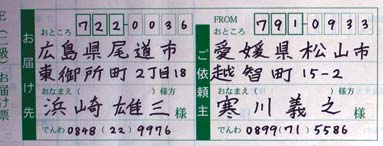 お届け票
お届け先
おところ 722-0036
広島県尾道市
東御所町2丁目18
おなまえ ( ) 様方
浜崎雄三 様
でんわ 0848 (22) 9976
ご依頼主
FROM
おところ 791-0933
愛媛県松山市
越智町15-2
おなまえ ( ) 様方
寒川義之 様
でんわ 0899 (71) 5586